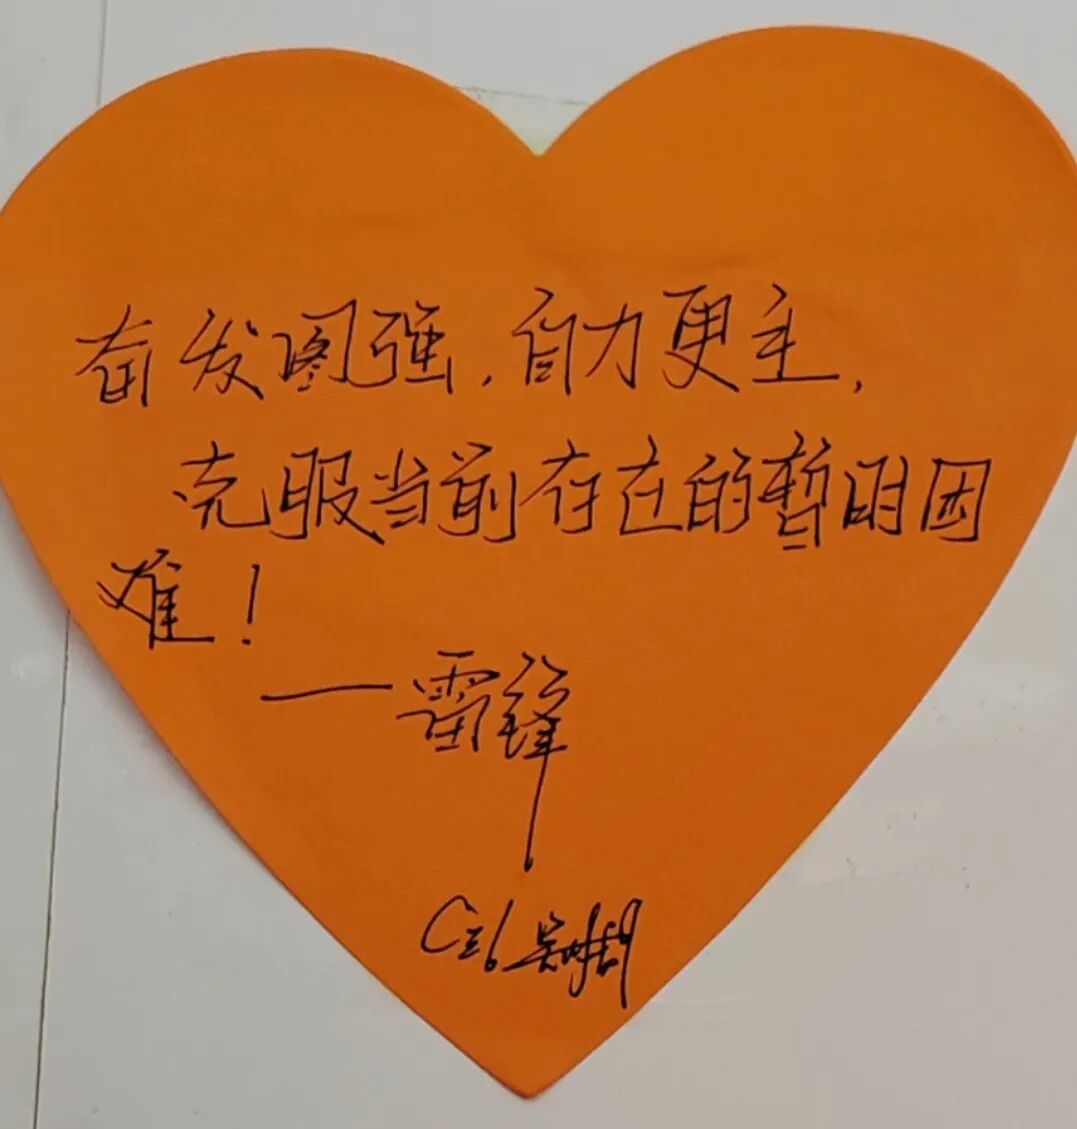 奋发图强,自力更生,
克服当前存在的暂时困
难!
——雷锋